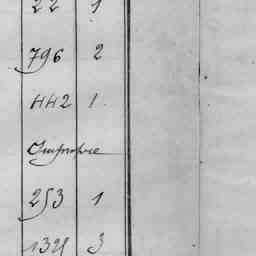 22 1
796 2
442 1
Impropre
253 1
1321 3